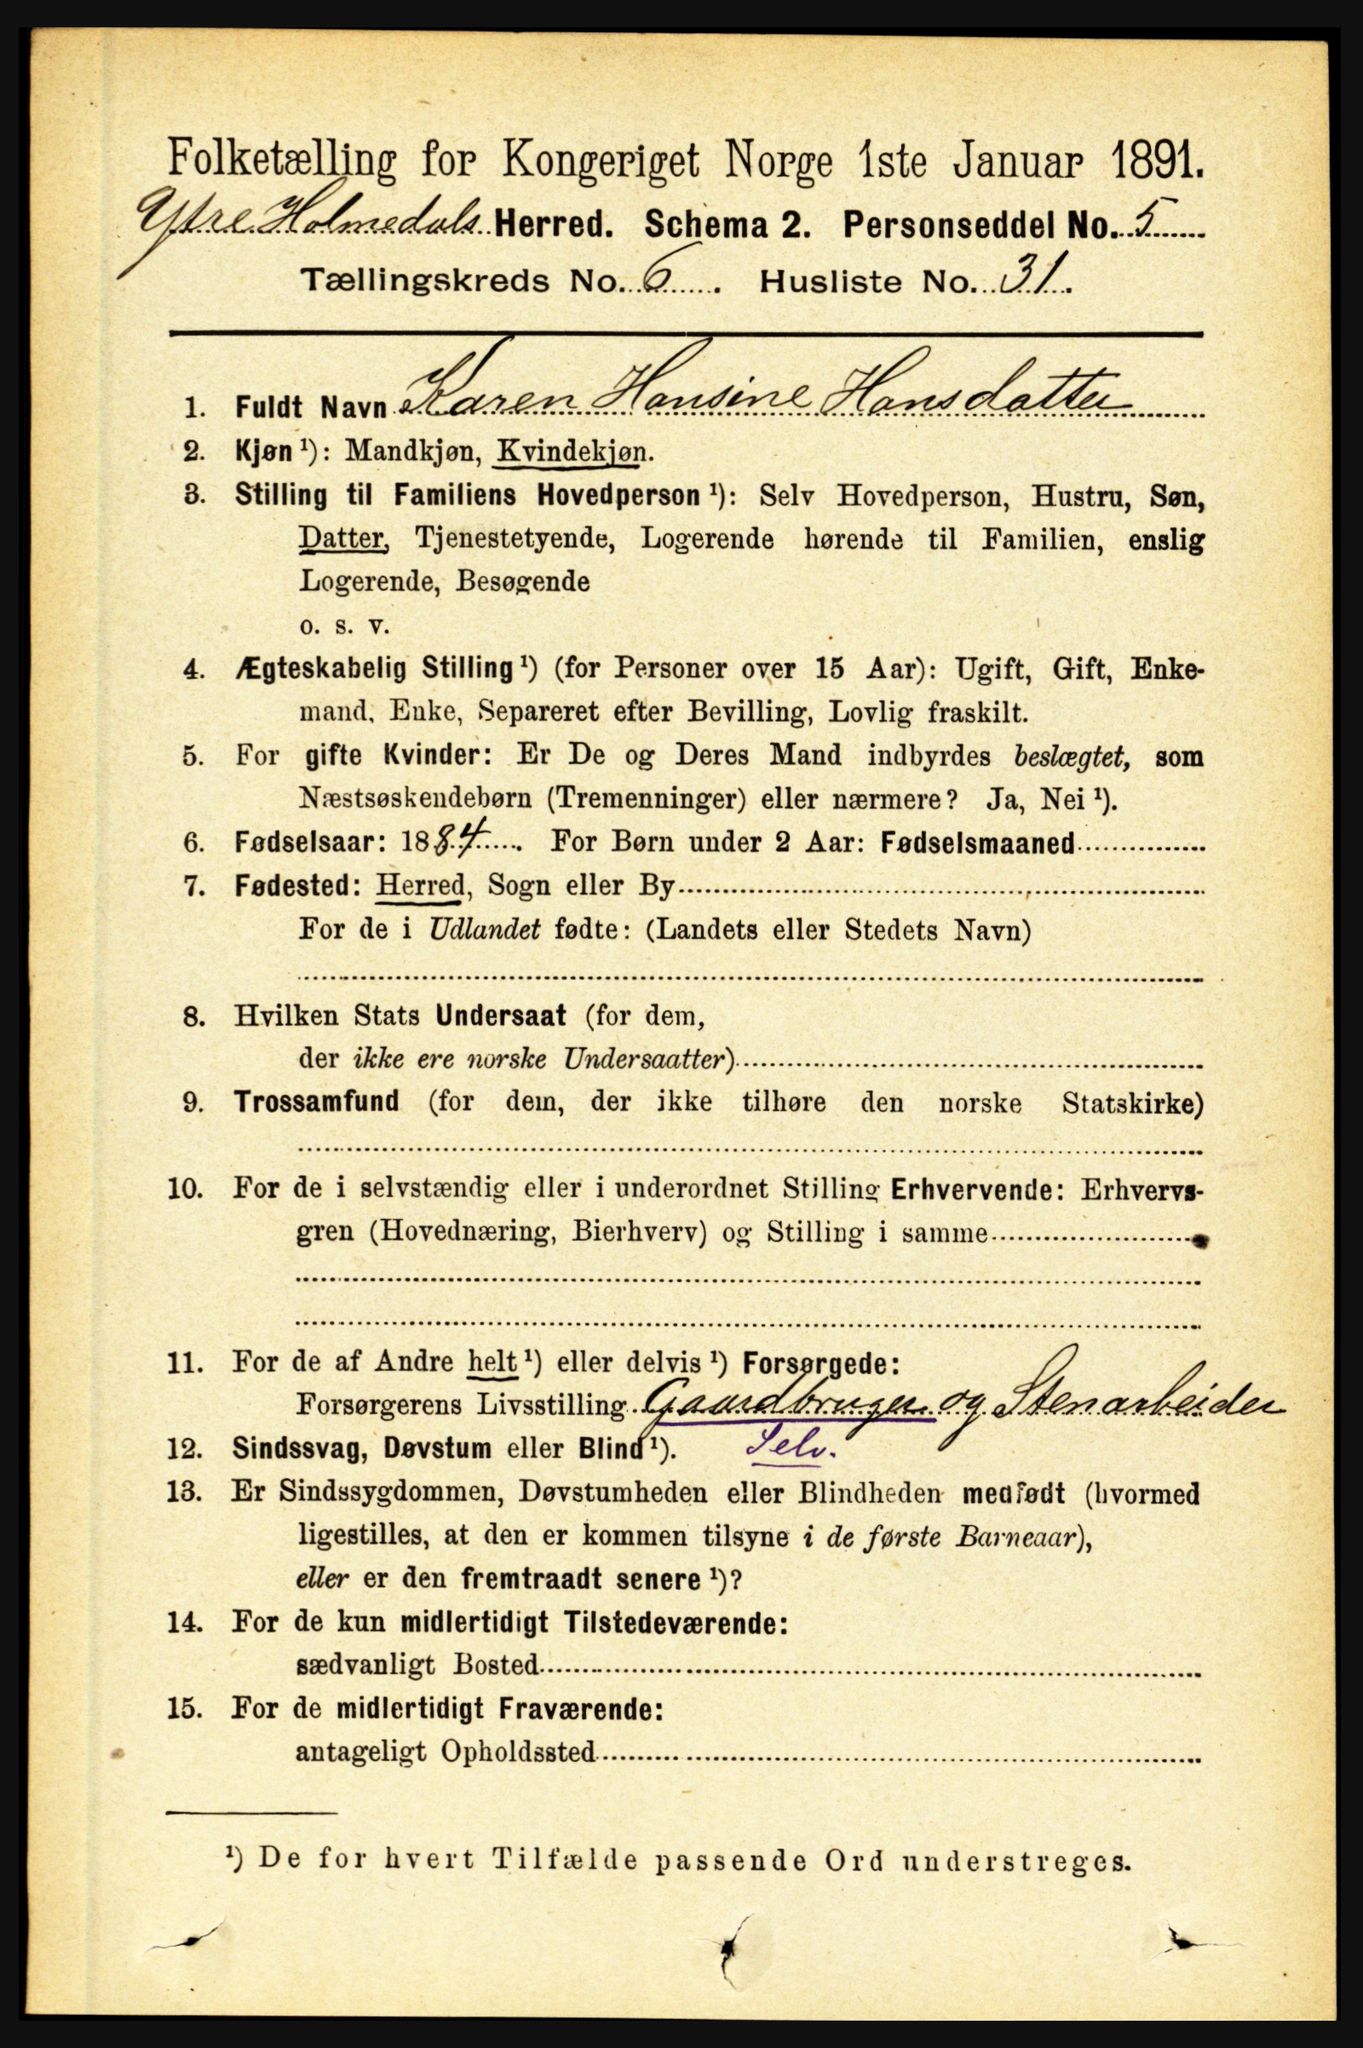 Folketælling for Kongeriget Norge 1ste Januar 1891.
Ytre Holmedals Herred. Schema 2. Personseddel No. 5
Tællingskreds No. 6. Husliste No. 31.
1. Fuldt Navn Karen Hansine Hansdatter
2. Kjøn ¹): Mandkjøn, Kvindekjøn.
3. Stilling til Familiens Hovedperson ¹): Selv Hovedperson, Hustru, Søn,
Datter, Tjenestetyende, Logerende hørende til Familien, enslig
Logerende, Besøgende
o. s. v.
4. Ægteskabelig Stilling ¹) (for Personer over 15 Aar): Ugift, Gift, Enke-
mand, Enke, Separeret efter Bevilling, Lovlig fraskilt.
5. For gifte Kvinder: Er De og Deres Mand indbyrdes beslægtet, som
Næstsøskendebørn (Tremenninger) eller nærmere? Ja, Nei ¹).
6. Fødselsaar: 1884. For Børn under 2 Aar: Fødselsmaaned
7. Fødested: Herred, Sogn eller By
For de i Udlandet fødte: (Landets eller Stedets Navn)
8. Hvilken Stats Undersaat (for dem,
der ikke ere norske Undersaatter)
9. Trossamfund (for dem, der ikke tilhøre den norske Statskirke)
10. For de i selvstændig eller i underordnet Stilling Erhvervende: Erhvervs-
gren (Hovednæring, Bierhverv) og Stilling i samme
11. For de af Andre helt ¹) eller delvis ¹) Forsørgede:
Forsørgerens Livsstilling Gaardbruger og Stenarbeider
12. Sindssvag, Døvstum eller Blind ¹). Selv.
13. Er Sindssygdommen, Døvstumheden eller Blindheden medfødt (hvormed
ligestilles, at den er kommen tilsyne i de første Barneaar),
eller er den fremtraadt senere ¹)?
14. For de kun midlertidigt Tilstedeværende:
sædvanligt Bosted
15. For de midlertidigt Fraværende:
antageligt Opholdssted
¹) De for hvert Tilfælde passende Ord understreges.